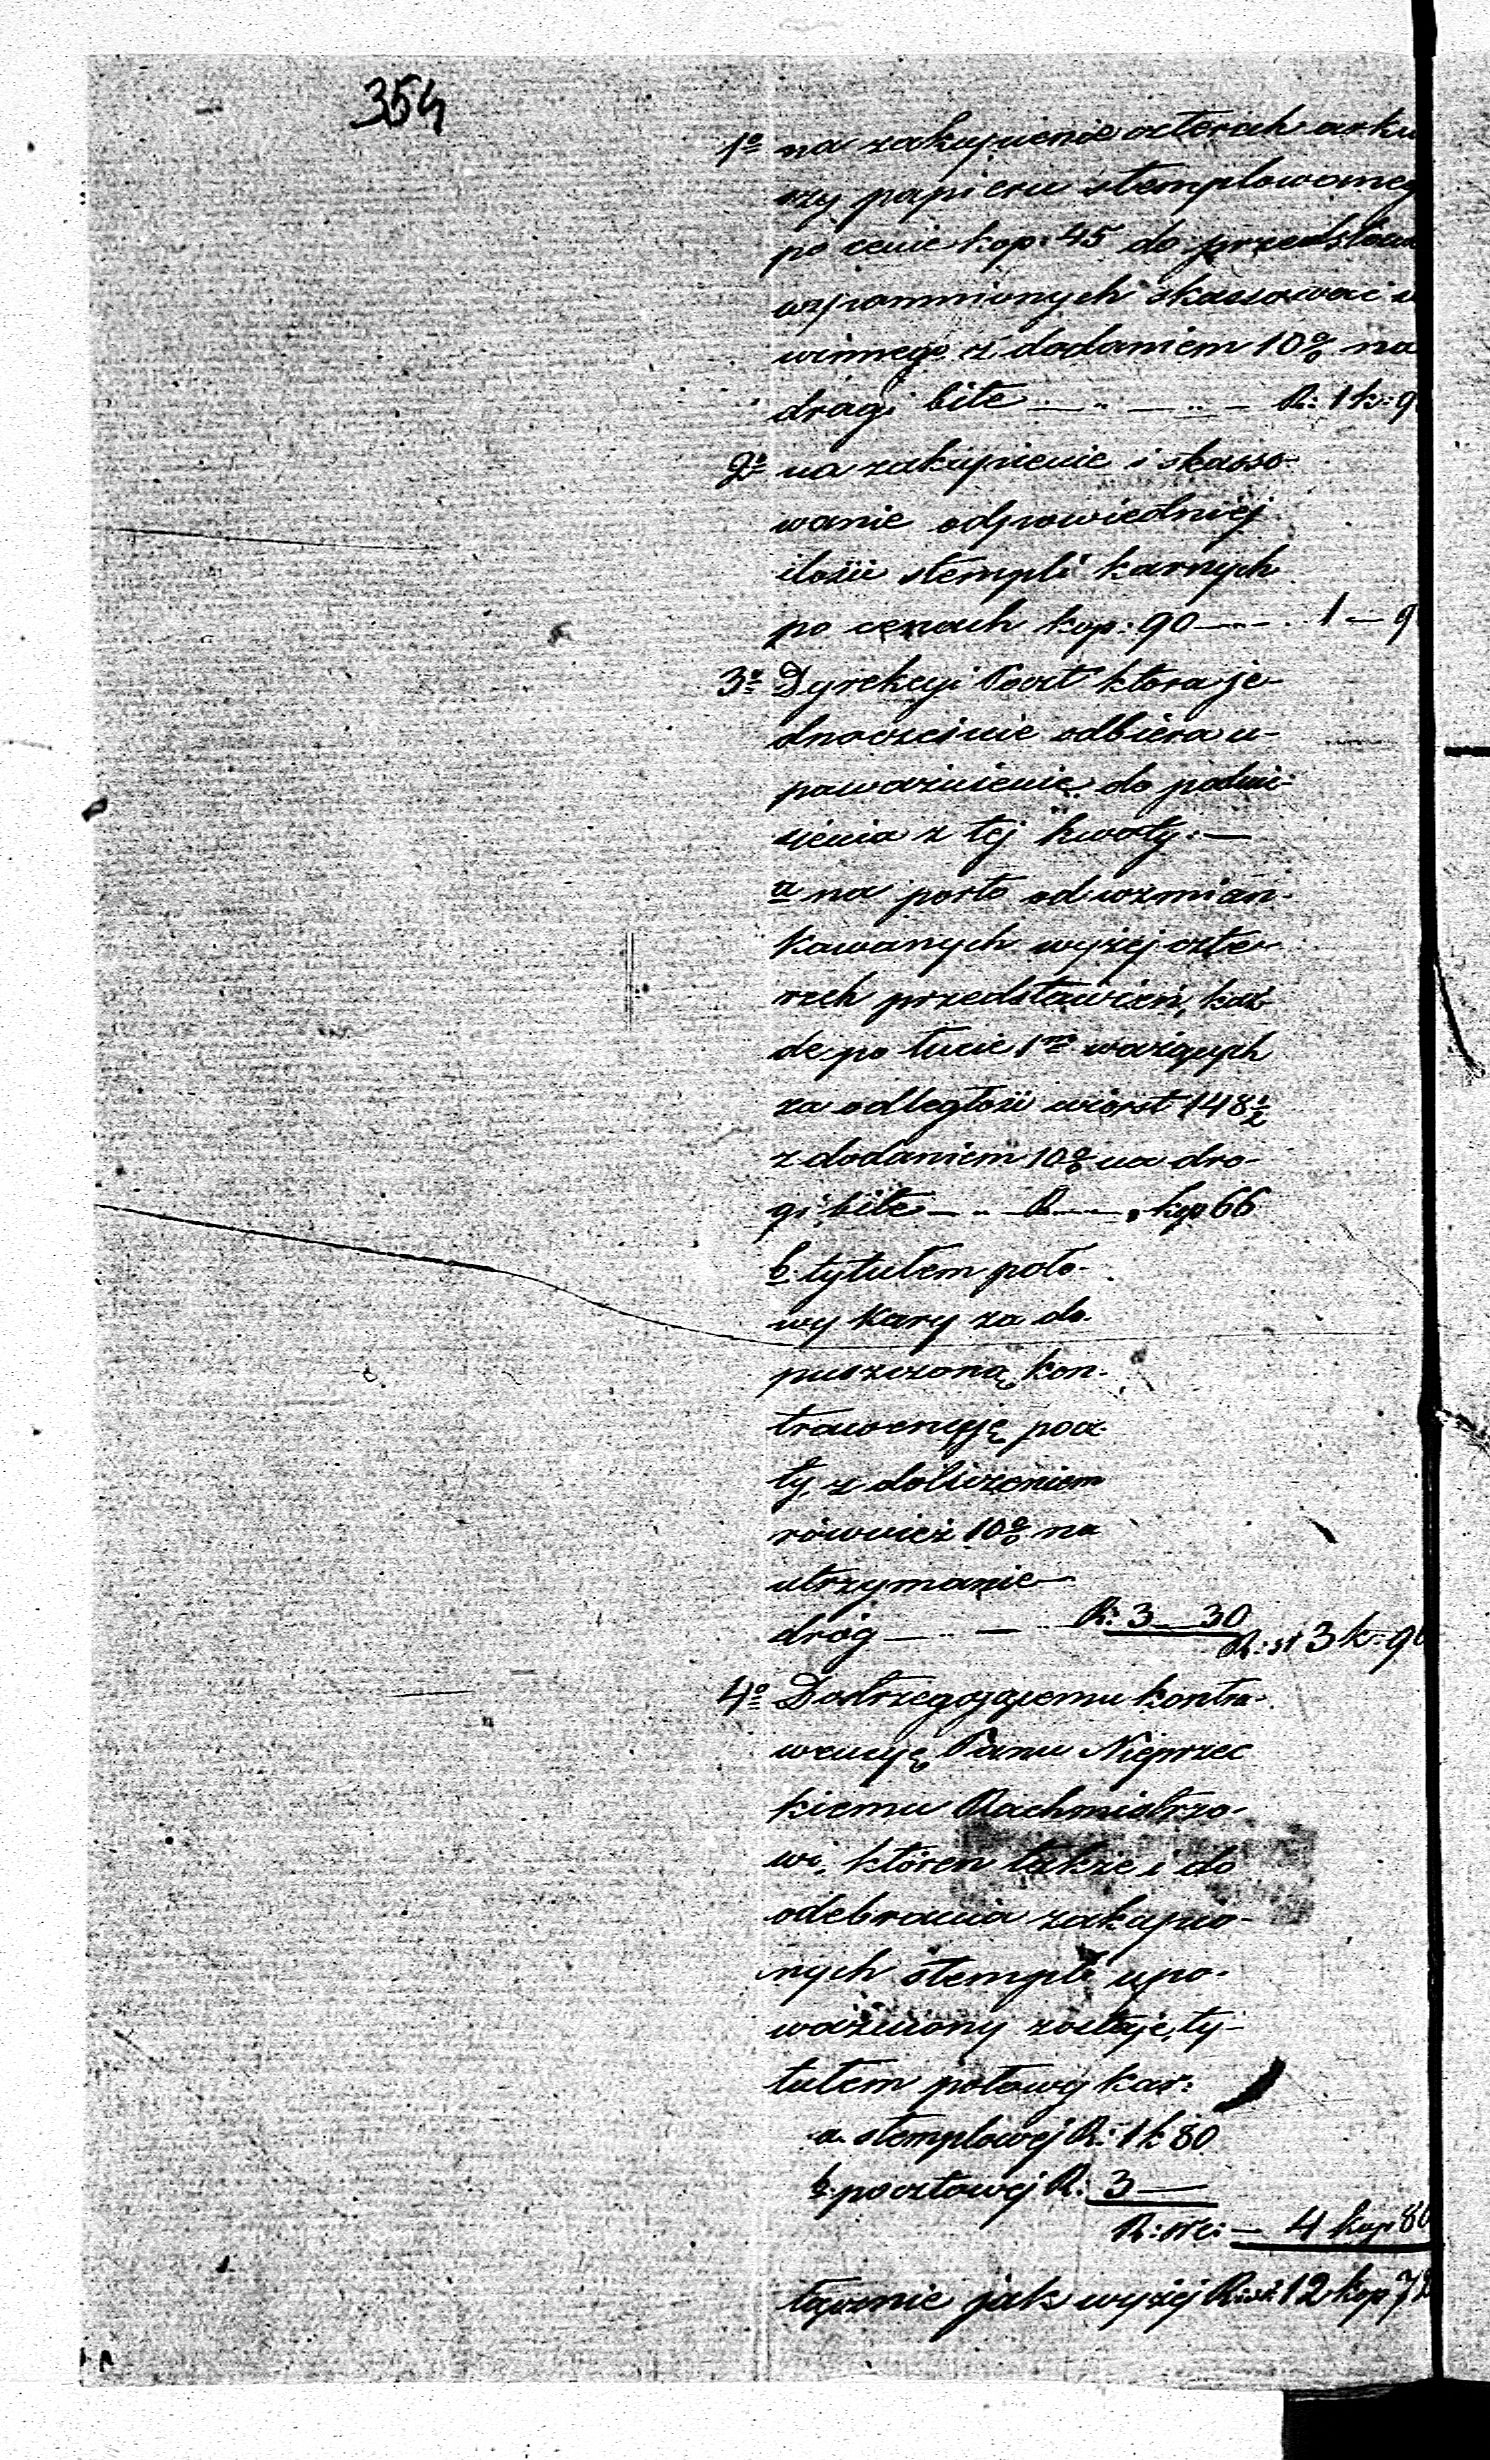 354
1o na zakupienie czterech arku
szy papieru stemplowaneg
po cenie kop: 45 do przedstaw
wspomnionych skassować
winnego z dodaniem 10% na
drogi bite — " — " — R: 1 k: 9
2o na zakupienie i skasso-
wanie odpowiedniéj
ilości stempli karnych
po cenach kop: 90 — " — 1 — 9
3o Dyrekcyi Poczt która je-
dnocześnie odbiera u-
poważnienie do podnie-
sienia z téj kwoty: —
a na porto od wzmian-
kowanych wyżéj czte-
rech przedstawień, każ
de po łucie 1m ważących
za odległości wiorst 148½
z dodaniem 10% na dro-
gi bite — " — R — " kop 66
b. tytułem poło-
wy kary za do-
puszczoną kon-
trawencyję pocz-
ty, z doliczeniem
również 10% na
utrzymanie
dróg — " — " R: 3 — 30
R: sr 3 k: 96
4o Dostrzegającemu kontra-
wencyją Panu Nieprzec
kiemu Rachmistrzo-
wi, któren także i do
odebrania zakupio-
nych stempli upo-
ważniony zostaje, ty-
tułem połowy kar:
a. stemplowéj R: 1 k 80
b. pocztowéj R: 3 —
R: sr: — 4 kop 80
łącznie jak wyżéj R: sr 12 kop 7